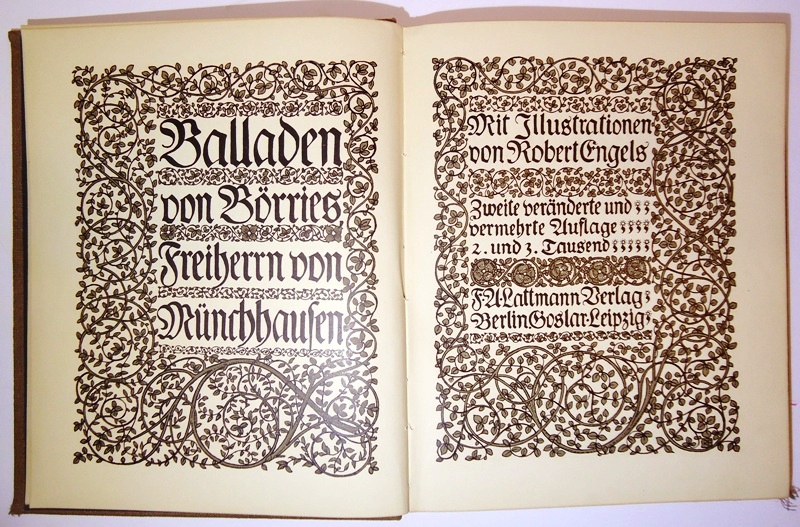 Balladen
von Börries
Freiherrn von
Münchhausen
Mit Illustrationen
von Robert Engels
Zweite veränderte und
vermehrte Auflage
2. und 3. Tausend
F·A·Lattmann Verlag
Berlin Goslar·Leipzig